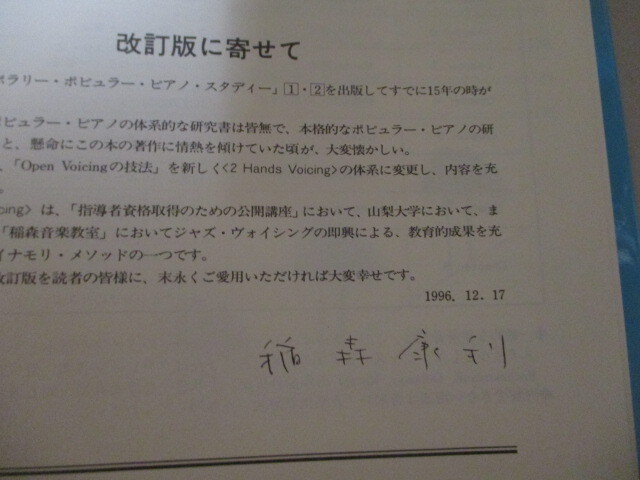 改訂版に寄せて
ポラリー・ポピュラー・ピアノ・スタディー」1・2を出版してすでに15年の時が
ピュラー・ピアノの体系的な研究書は皆無で、本格的なポピュラー・ピアノの研
と、懸命にこの本の著作に情熱を傾けていた頃が、大変懐かしい。
、「Open Voicingの技法」を新しく<2 Hands Voicing>の体系に変更し、内容を充
。
cing> は、「指導者資格取得のための公開講座」において、山梨大学において、ま
「稲森音楽教室」においてジャズ・ヴォイシングの即興による、教育的成果を充
イナモリ・メソッドの一つです。
改訂版を読者の皆様に、末永くご愛用いただければ大変幸せです。
1996. 12. 17
稲森康利